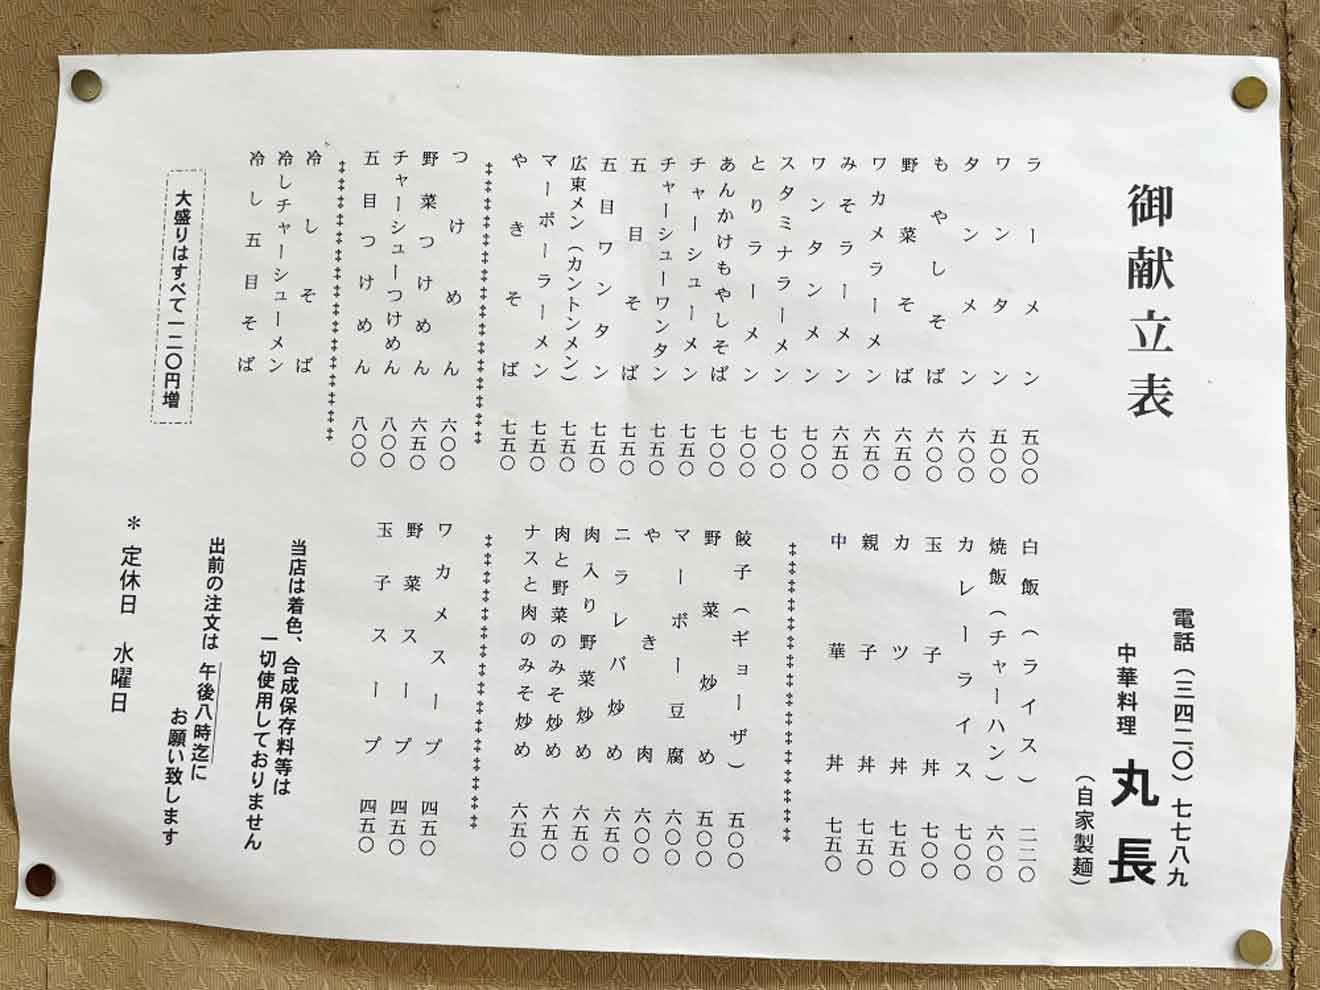 御献立表
電話(三四二〇)七七八九
中華料理 丸長
(自家製麺)
ラーメン 五〇〇
ワンタン 五〇〇
タンメン 六〇〇
もやしそば 六〇〇
野菜そば 六五〇
ワカメラーメン 六五〇
みそラーメン 六五〇
ワンタンメン 七〇〇
スタミナラーメン 七〇〇
とりラーメン 七〇〇
あんかけもやしそば 七〇〇
チャーシューメン 七五〇
チャーシューワンタン 七五〇
五目そば 七五〇
五目ワンタン 七五〇
広東メン(カントンメン) 七五〇
マーボーラーメン 七五〇
やきそば 七五〇
つけめん 六〇〇
野菜つけめん 六五〇
チャーシューつけめん 八〇〇
五目つけめん 八〇〇
冷しそば
冷しチャーシューメン
冷し五目そば
大盛りはすべて一二〇円増
白飯(ライス) 二二〇
焼飯(チャーハン) 六〇〇
カレーライス 七〇〇
玉子丼 七〇〇
カツ丼 七五〇
親子丼 七五〇
中華丼 七五〇
餃子(ギョーザ) 五〇〇
野菜炒め 五〇〇
マーボー豆腐 六〇〇
やき肉 六〇〇
ニラレバ炒め 六五〇
肉入り野菜炒め 六五〇
肉と野菜のみそ炒め 六五〇
ナスと肉のみそ炒め 六五〇
ワカメスープ 四五〇
野菜スープ 四五〇
玉子スープ 四五〇
当店は着色、合成保存料等は
一切使用しておりません
出前の注文は 午後八時迄に
お願い致します
＊定休日 水曜日